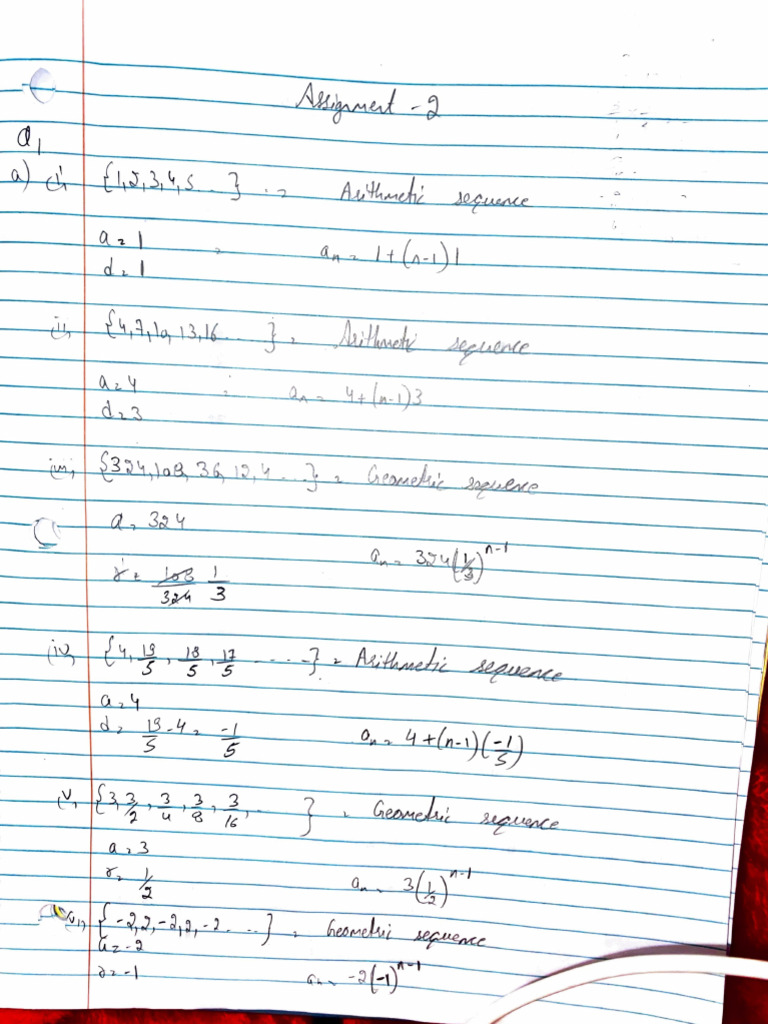 Assignment - 2
Q1
a) (i) {1,2,3,4,5...} = Arithmetic sequence
a = 1 an = 1+(n-1)1
d = 1
ii, {4,7,10,13,16.....} = Arithmetic sequence
a = 4 an = 4+(n-1)3
d = 3
(iii, {324,108,36,12,4....} = Geometric sequence
a = 324
an = 324(1/3)^n-1
r = 108/324 1/3
(iv, {4, 19/5, 18/5, 17/5 ......} = Arithmetic sequence
a = 4
d = 19/5 - 4 = -1/5 an = 4+(n-1)(-1/5)
v, {3, 3/2, 3/4, 3/8, 3/16, .. } = Geometric sequence
a = 3
r = 1/2 an = 3(1/2)^n-1
vi, {-2,2,-2,2,-2.....} = Geometric sequence
a = -2
r = -1 an = -2(-1)^n-1